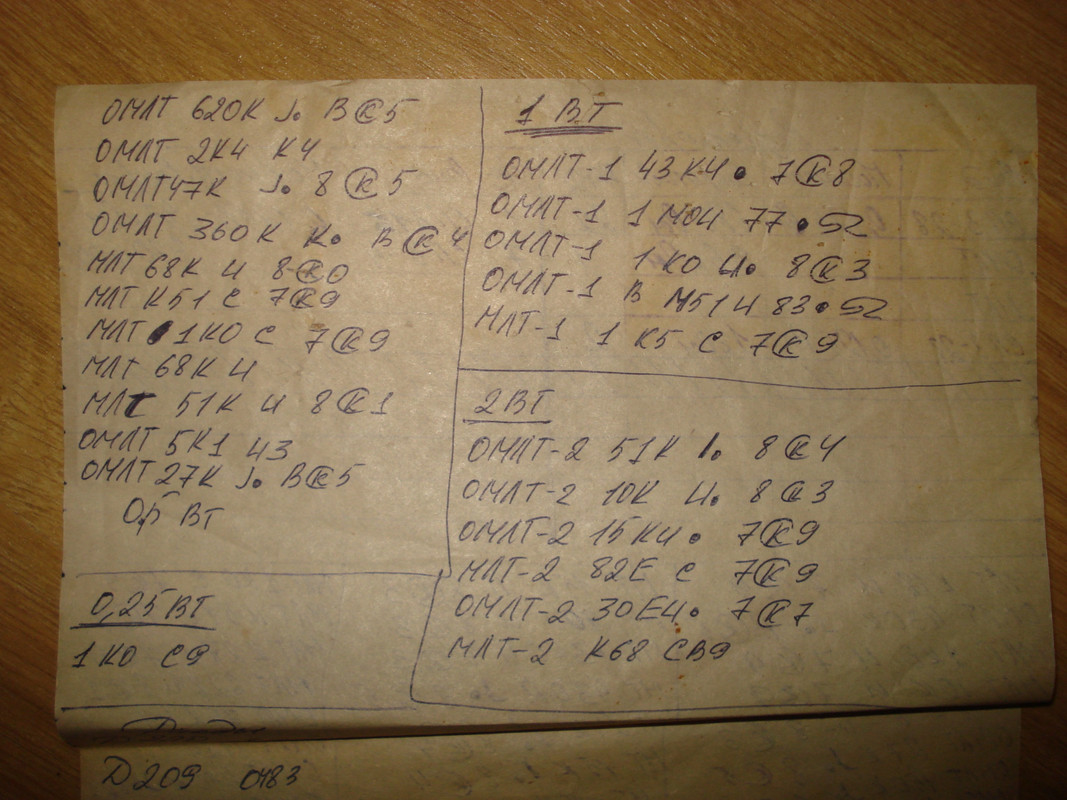 ОМЛТ 620К J. В Ⓚ 5
ОМЛТ 2К4 К4
ОМЛТ 47К J. 8 Ⓚ 5
ОМЛТ 360К К. В Ⓚ 4
МЛТ 68К И 8 Ⓚ 0
МЛТ К51 С 7 Ⓚ 9
МЛТ 1К0 С 7 Ⓚ 9
МЛТ 68К И
МЛТ 51К И 8 Ⓚ 1
ОМЛТ 5К1 43
ОМЛТ 27К J. В Ⓚ 5
ВТ
0,25 ВТ
1К0 С9
1 ВТ
ОМЛТ-1 43КИ. 7 Ⓚ 8
ОМЛТ-1 1М0И 77.
ОМЛТ-1 1К0 И. 8 Ⓚ 3
ОМЛТ-1 В М51И 83.
МЛТ-1 1К5 С 7 Ⓚ 9
2ВТ
ОМЛТ-2 51К 8 Ⓚ 4
ОМЛТ-2 10К И. 8 Ⓚ 3
ОМЛТ-2 15КИ. 7 Ⓚ 9
МЛТ-2 82Е С 7 Ⓚ 9
ОМЛТ-2 30ЕИ. 7 Ⓚ 7
МЛТ-2 К68 СВ9
Д209 0483